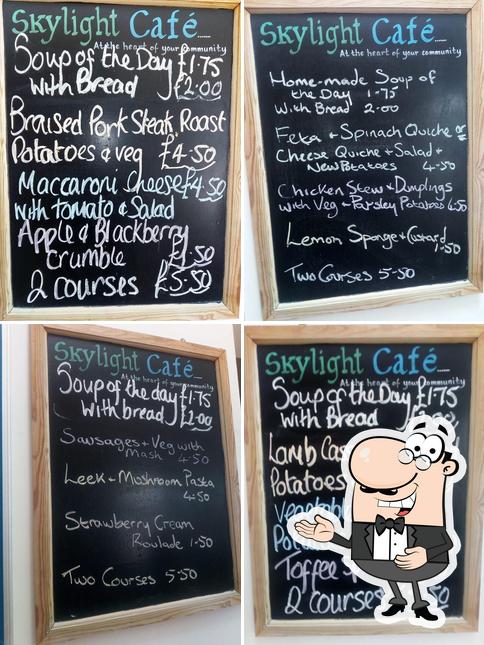 Skylight Café......
At the heart of your community
Soup of the Day £1.75
with Bread £2.00
Braised Pork Steak, Roast
Potatoes & veg £4.50
Maccaroni Cheese £4.50
with tomato & Salad
Apple & Blackberry
Crumble £1.50
2 courses £5.50
Skylight Café......
At the heart of your community
Home-made Soup of
the Day 1-75
With Bread 2-00
Feta + Spinach Quiche or
Cheese Quiche + Salad +
New Potatoes 4-50
Chicken Stew + Dumplings
with Veg + Parsley Potatoes 4-50
Lemon Sponge + Custard
1-50
Two Courses 5-50
Skylight Café......
At the heart of your community
Soup of the day £1.75
with bread £2.00
Sausages + Veg with
Mash 4-50
Leek + Mushroom Pasta
4-50
Strawberry Cream
Roulade 1-50
Two Courses 5-50
Skylight Café......
At the heart of your community
Soup of the Day £1.75
With Bread
Lamb
Potatoes
Toffee
2 courses 50